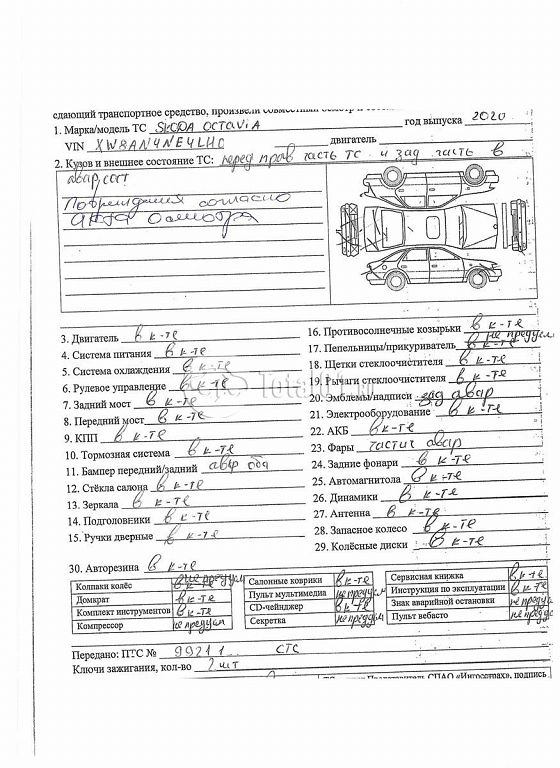 сдающий транспортное средство, произвели совместный осмотр
1. Марка/модель ТС SKODA OCTAVIA год выпуска 2020
VIN XW8AN4NE4LH0 двигатель
2. Кузов и внешнее состояние ТС: перед прав часть ТС и зад часть в
авар сост
Повреждения согласно
Акта Осмотра
3. Двигатель в к-те
4. Система питания в к-те
5. Система охлаждения в к-те
6. Рулевое управление в к-те
7. Задний мост в к-те
8. Передний мост в к-те
9. КПП в к-те
10. Тормозная система в к-те
11. Бампер передний/задний авар оба
12. Стёкла салона в к-те
13. Зеркала в к-те
14. Подголовники в к-те
15. Ручки дверные в к-те
16. Противосолнечные козырьки в к-те
17. Пепельницы/прикуриватель в к-те не предусм
18. Щетки стеклоочистителя в к-те
19. Рычаги стеклоочистителя в к-те
20. Эмблемы/надписи зад авар
21. Электрооборудование в к-те
22. АКБ в к-те
23. Фары частич авар
24. Задние фонари в к-те
25. Автомагнитола в к-те
26. Динамики в к-те
27. Антенна в к-те
28. Запасное колесо в к-те
29. Колёсные диски в к-те
30. Авторезина в к-те
Колпаки колёс не предусм в к-те
Домкрат в к-те
Комплект инструментов в к-те
Компрессор не предусм
Салонные коврики в к-те
Пульт мультимедиа не предусм
CD-чейнджер в к-те
Секретка не предусм
Сервисная книжка в к-те
Инструкция по эксплуатации в к-те
Знак аварийной остановки не предусм
Пульт вебасто не предусм
Передано: ПТС № 99211 СТС
Ключи зажигания, кол-во 2 шт
Представитель СПАО «Ингосстрах», подпись